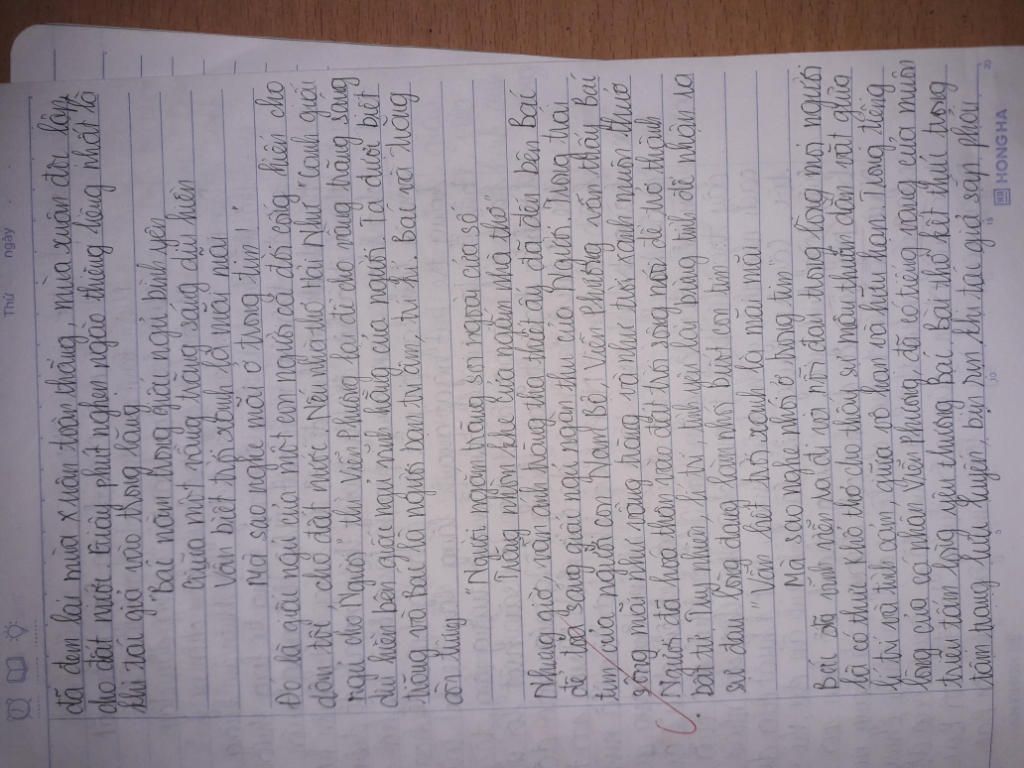 Thứ ngày
đã đem lại mùa xuân toàn thắng, mùa xuân đời lập
cho đất nước. Giây phút nghẹn ngào thiêng liêng nhất là
khi tác giả vào trong lăng
"Bác nằm trong giấc ngủ bình yên
Giữa một vầng trăng sáng dịu hiền
Vẫn biết trời xanh là mãi mãi
Mà sao nghe nhói ở trong tim!
Đó là giấc ngủ của một con người cả đời cống hiến cho
dân tộc, cho đất nước. Nếu nhà thơ Hải Như "Canh giấc
ngủ cho Người" thì Viễn Phương lại để cho vầng trăng sáng
dịu hiền bên giấc ngủ vĩnh hằng của người. Ta đều biết
trăng và Bác là người bạn tri âm, tri kỉ. Bác và trăng
còn từng
"Người ngắm trăng soi ngoài cửa sổ
Trăng nhòm khe cửa ngắm nhà thơ"
Nhưng giờ vẫn ánh trăng tha thiết ấy đã đến bên Bác
để soi sáng giấc ngủ ngàn thu của Người. Trong trái
tim của người con Nam Bộ, Viễn Phương vẫn thấy Bác
sống mãi như vầng trăng và như trời xanh muôn thuở
Người đã hoá thân vào đất trời sông núi để trở thành
bất tử. Tuy nhiên, lí trí, tình yêu lớn bừng tỉnh để nhận ra
sự đau lòng đang làm nhói buốt con tim
"Vẫn biết trời xanh là mãi mãi
Mà sao nghe nhói ở trong tim"
Bác đã vĩnh viễn ra đi và nỗi đau trong lòng mọi người
là có thực. Khổ thơ cho thấy sự mâu thuẫn đến vắt giữa
lí trí và tình cảm, giữa vô hạn và hữu hạn. Trong tiếng
lòng của cá nhân Viễn Phương, đã có tiếng vang của muôn
triệu tấm lòng yêu thương Bác. Bài thơ kết thúc trong
tâm trạng lưu luyến, bịn rịn khi tác giả sắp phải
HONGHA